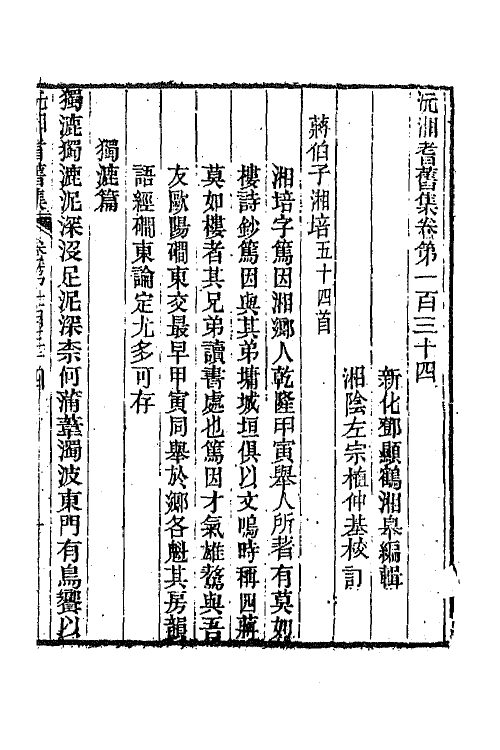 沅湘耆舊集卷第一百三十四
新化鄧顯鶴湘皋編輯
湘陰左宗植仲基校訂
蔣伯子湘培五十四首
湘培字篤因湘鄉人乾隆甲寅舉人所著有莫如
樓詩鈔篤因與其弟墉城垣俱以文鳴時稱四蔣
莫如樓者其兄弟讀書處也篤因才氣雄鶩與吾
友歐陽磵東交最早甲寅同舉於鄉各魁其房韻
語經磵東論定尤多可存
獨漉篇
獨漉獨漉泥深沒足泥深柰何蒲葦濁波東門有鳥饗以